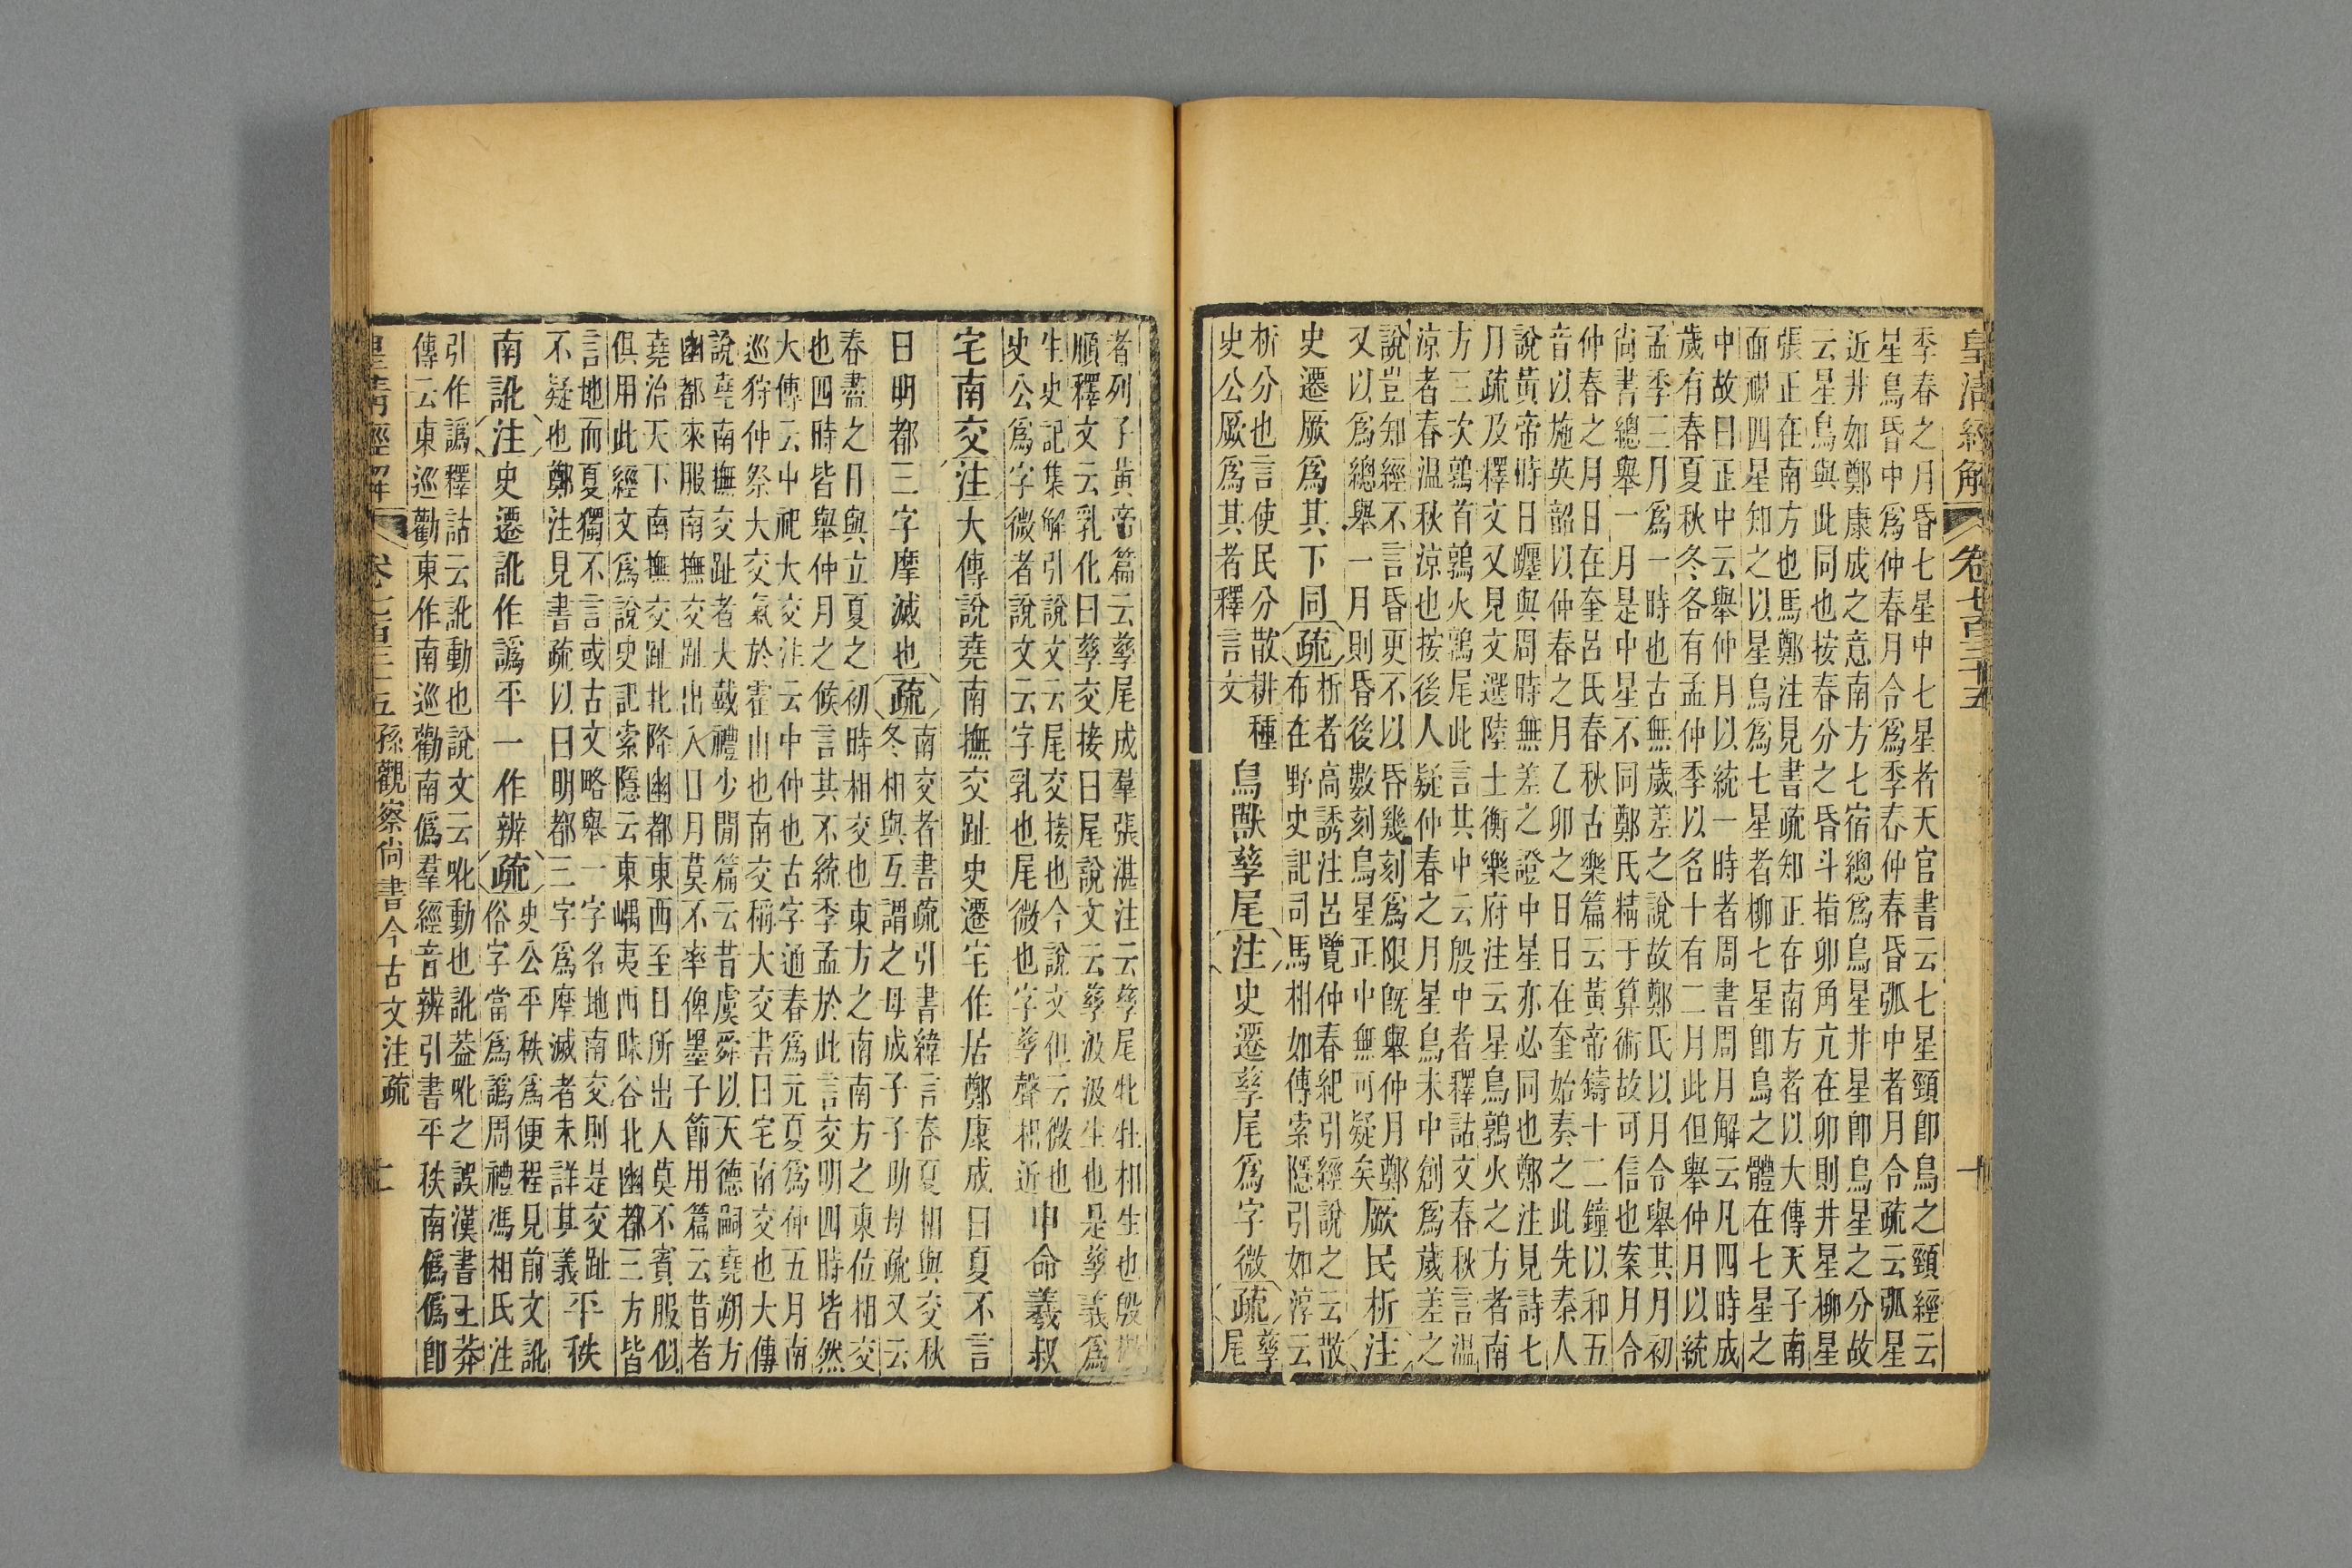 皇清經解 卷七百三十五 十
季春之月昏七星中七星者天官書云七星頸卽鳥之頸經云
星鳥昏中爲仲春月令爲季春仲春昏弧中者月令疏云弧星
近井如鄭康成之意南方七宿總爲鳥星井星卽鳥星之分故
云星鳥與此同也按春分之昏斗指卯角亢在卯則井星柳星
張正在南方也馬鄭注見書疏知正存南方者以大傳天子南
面視四星知之以星鳥爲七星者柳七星卽鳥之體在七星之
中故曰正中云舉仲月以統一時者周書周月解云凡四時成
歲有春夏秋冬各有孟仲季以名十有二月此但舉仲月以統
孟季三月爲一時也古無歲差之說故鄭氏以月令舉其月初
尚書總舉一月是中星不同鄭氏精于算術故可信也案月令
仲春之月日在奎呂氏春秋古樂篇云黃帝鑄十二鐘以和五
音以施英韶以仲春之月乙卯之日日在奎始奏之此先秦人
說黃帝時日躔與周時無差之證中星亦必同也鄭注見詩七
月疏及釋文又見文選陸士衡樂府注云星鳥鶉火之方者南
方三次鶉首鶉火鶉尾此言其中云殷中者釋詁文春秋言溫
涼者春温秋涼也按後人疑仲春之月星鳥未中創爲歲差之
說豈知經不言昏更不以昏幾刻爲限旣舉仲月鄭
又以爲總舉一月則昏後數刻鳥星正中無可疑矣
厥民析注
史遷厥爲其下同疏
析者高誘注呂覽仲春紀引經說之云散
布在野史記司馬相如傳索隱引如淳云
析分也言使民分散耕種
史公厥爲其者釋言文
鳥獸孳尾注史遷孳尾爲字微疏
孳
尾
者列子黃帝篇云孳尾成羣張湛注云孳尾牝牡相生也殷
順釋文云乳化曰孳交接曰尾說文云孳汲汲生也是孳義爲
生史記集解引說文云尾交接也今說文但云微也
史公爲字微者說文云字乳也尾微也字孳聲相近
申命羲叔
宅南交注大傳說堯南撫交趾史遷宅作居鄭康成曰夏不言
曰明都三字摩滅也疏
南交者書疏引書緯言春夏相與交秋
冬相與互謂之母成子子助母疏又云
春盡之日與立夏之初時相交也東方之南南方之東位相交
也四時皆舉仲月之候言其不統季孟於此言交明四時皆然
大傳云中祀大交注云中仲也古字通春爲元夏爲仲五月南
巡狩仲祭大交氣於霍山也南交稱大交書曰宅南交也大傳
說堯南撫交趾者大戴禮少閒篇云昔虞舜以天德嗣堯朔方
幽都來服南撫交趾出入日月莫不率俾墨子節用篇云昔者
堯治天下南撫交趾北降幽都東西至日所出入莫不賓服似
俱用此經文爲說史記索隱云東嵎夷西昧谷北幽都三方皆
言地而夏獨不言或古文略舉一字名地南交則是交趾
不疑也鄭注見書疏以曰明都三字爲摩滅者未詳其義
平秩
南訛注史遷訛作譌平一作辨疏
史公平秩爲便程見前文訛
俗字當爲譌周禮馮相氏注
引作譌釋詁云訛動也說文云吪動也訛葢吪之誤漢書王莽
傳云東巡勸東作南巡勸南僞羣經音辨引書平秩南僞僞卽
皇清經解 卷七百三十五 孫觀察尙書今古文注疏 十一